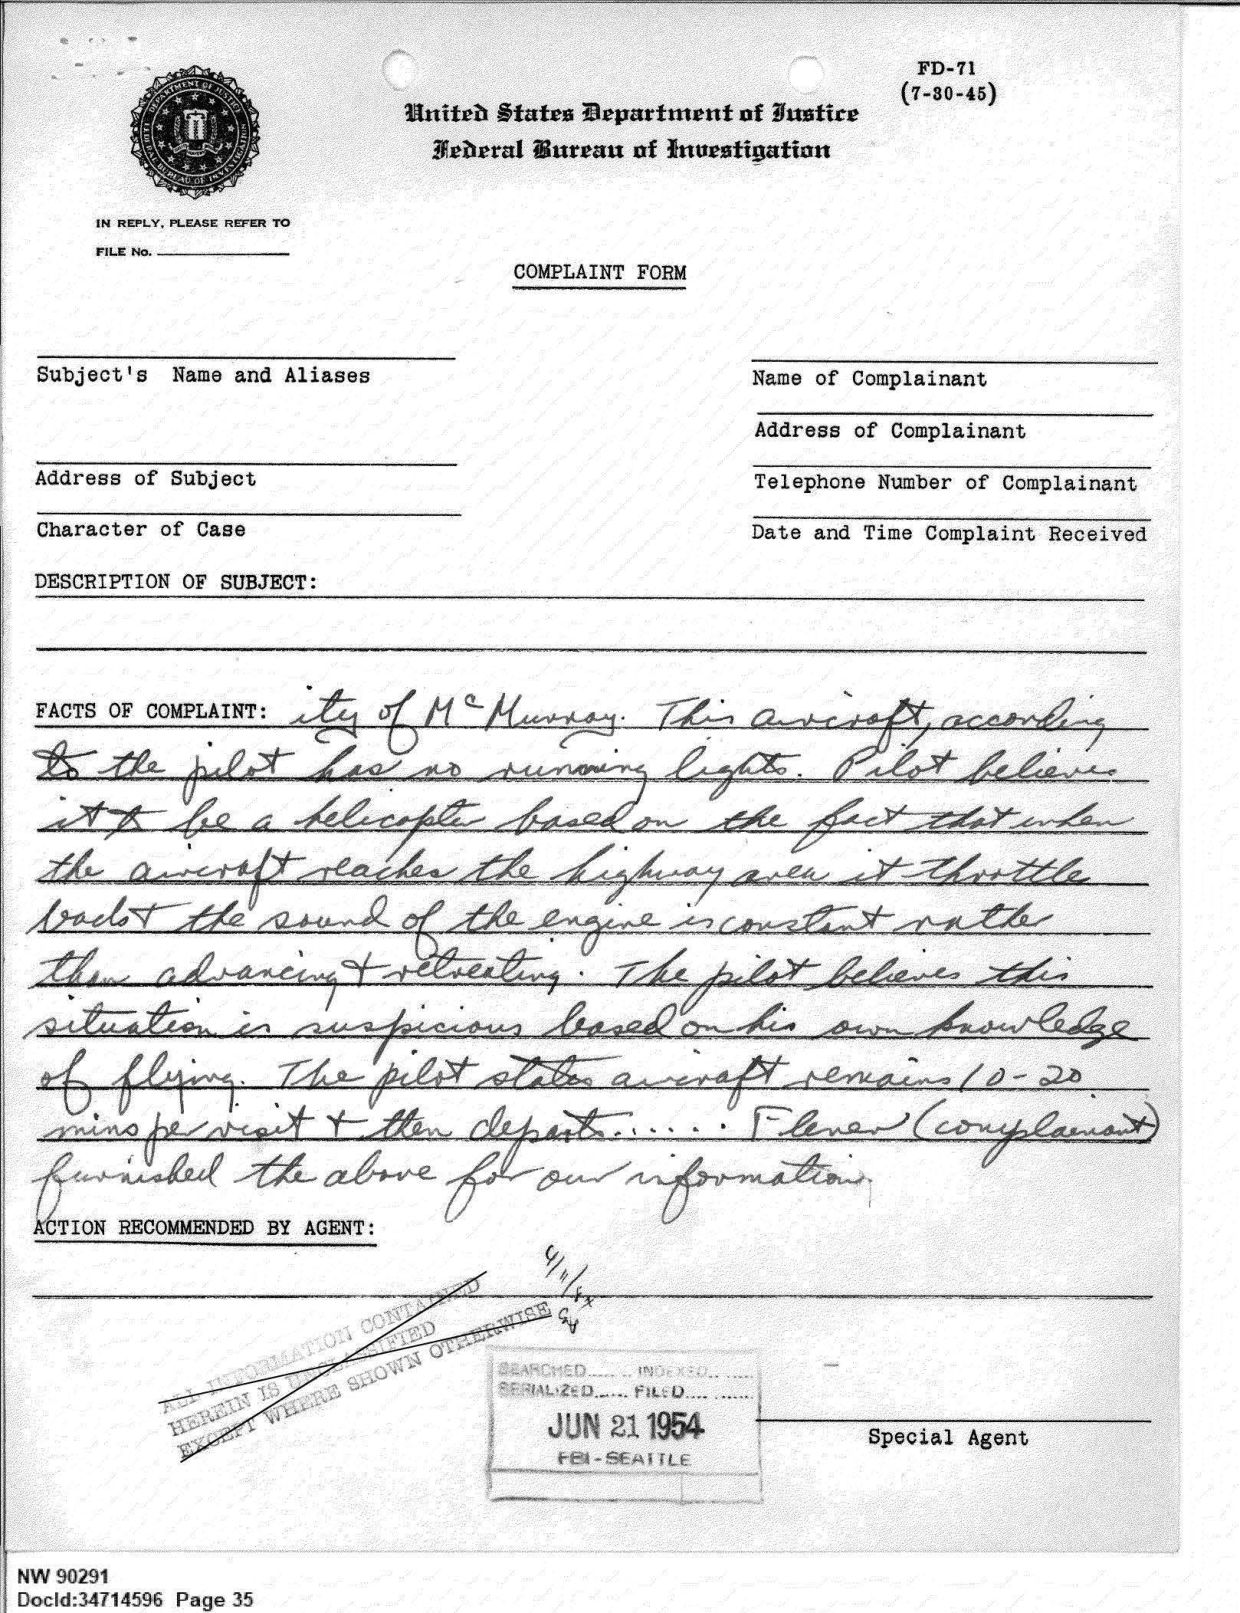 FD-71
(7-30-45)
United States Department of Justice
Federal Bureau of Investigation
IN REPLY, PLEASE REFER TO
FILE No.
COMPLAINT FORM
Subject's Name and Aliases
Name of Complainant
Address of Complainant
Address of Subject
Telephone Number of Complainant
Character of Case
Date and Time Complaint Received
DESCRIPTION OF SUBJECT:
FACTS OF COMPLAINT: ity of McMurray. This aircraft, according
to the pilot has no running lights. Pilot believes
it to be a helicopter based on the fact that when
the aircraft reaches the highway area it throttle
back & the sound of the engine is constant rather
than advancing & retreating. The pilot believes this
situation is suspicious based on his own knowledge
of flying. The pilot states aircraft remains 10-20
mins per visit & then departs...... Flener (complainant)
furnished the above for our information.
ACTION RECOMMENDED BY AGENT:
ALL INFORMATION CONTAINED
HEREIN IS UNCLASSIFIED
EXCEPT WHERE SHOWN OTHERWISE
SEARCHED...... INDEXED......
SERIALIZED...... FILED......
JUN 21 1954
FBI - SEATTLE
Special Agent
NW 90291
DocId:34714596 Page 35